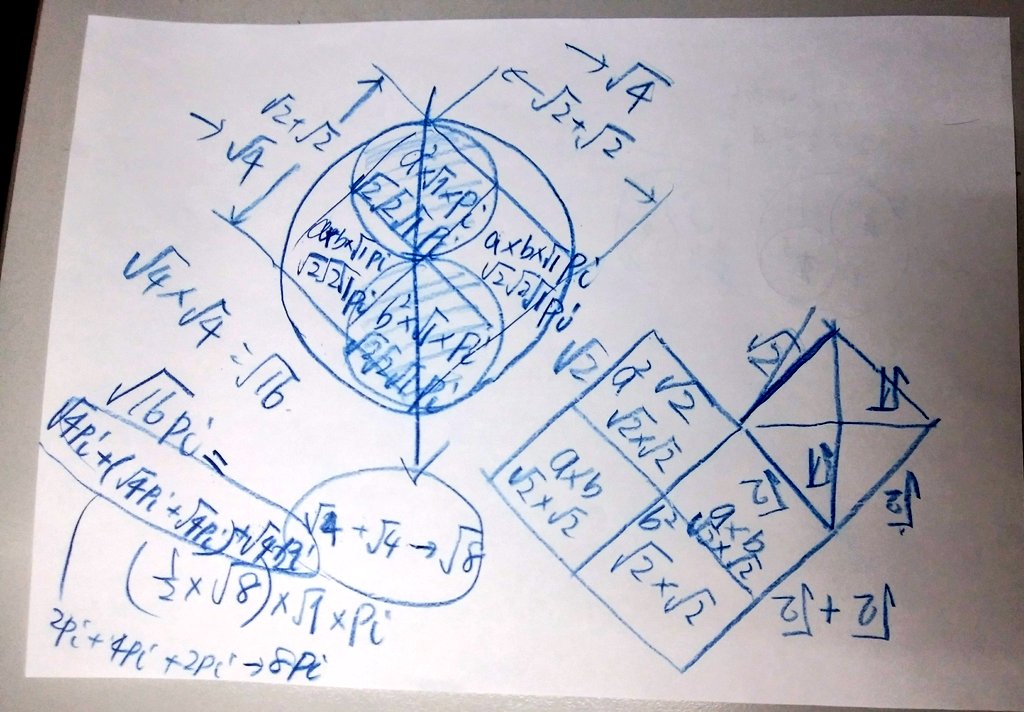 →√4
←√2+√2→
√2+√2
→√4
a²×√1×Pi
√2√2√1Pi
a×b×√1Pi
√2√2√1Pi
a×b×√1Pi
√2√2√1Pi
b²×√1×Pi
√2√2√1Pi
√4×√4=√16
√16Pi=
√4Pi+(√4Pi+√4Pi)+√4Pi
√4+√4→√8
(1/2×√8)×√1×Pi
2Pi+4Pi+2Pi→8Pi
√2
a² √2
√2×√2
a×b
√2×√2
√2
a×b
√2×√2
b²
√2×√2
√2
√1
√1
√2
√2+√2